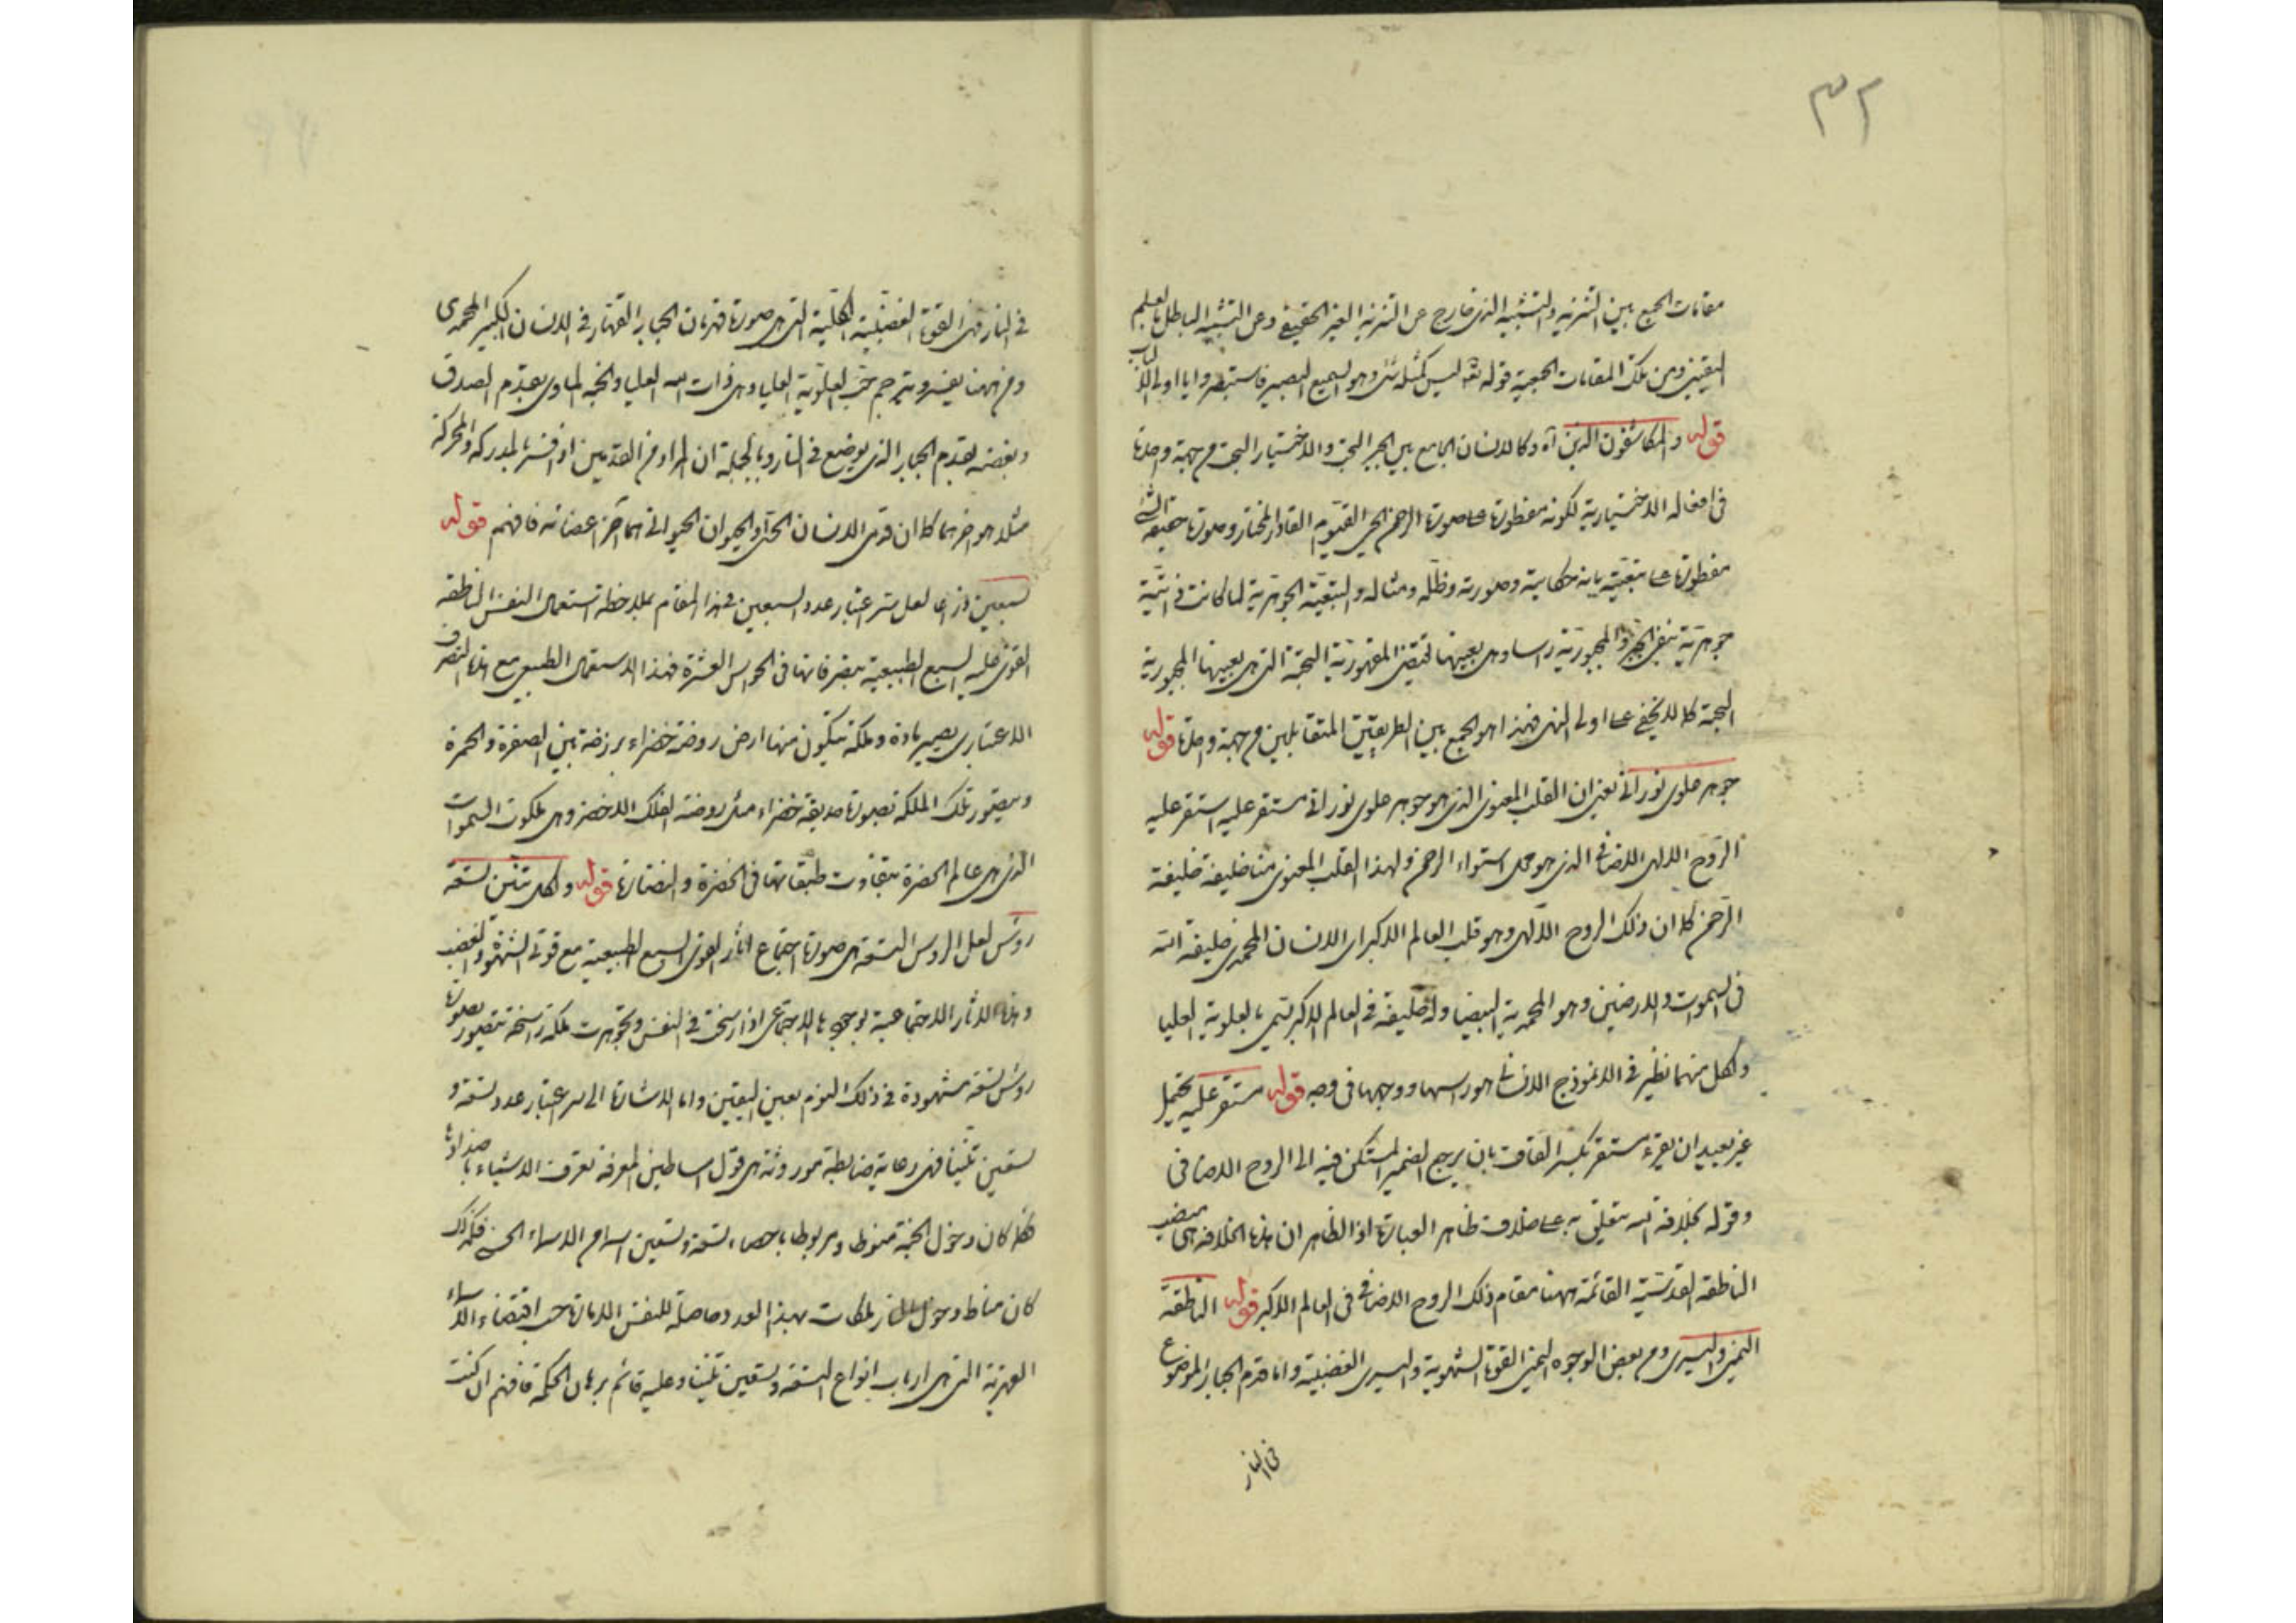 ٣٢
مقامات الجمع بين التنزيه والتشبيه الذى خارج عن التنزيه الغير الحقيقى وعن التشبيه الباطل بالعلم
اليقينى ومن تلك المقامات الجمعية قوله تع ليس كمثله شئ وهو السميع البصير فاستبصر وايا اولى الالباب
قوله والمكاشفون الذين آه وكالانسان الجامع بين الجبر البحت والاختيار البحت من جهة واحدة
فى افعاله الاختيارية لكونه مفطورة على صورة الرحمن الحى القيوم القادر المختار وصورة حقيقة الشئ
مفطورة على تبعيته بانه حكايته وصورته وظله ومثاله والتبعية الجوهرية لما كانت ذاتية
جوهرية ينفى الجبر والمجبورية راسا وهى بعينها تقتضى المقهورية البحتة التى هى بعينها المجبورية
البحتة كما لا يخفى على اولى النهى فهذا هو الجمع بين الطريقتين المتقابلين من جهة واحدة قوله
جوهر علوى نورانى يعنى ان القلب المعنوى الذى هو جوهر علوى نورانى مستقر عليه استقر عليه
الروح الالهى الاضافى الذى هو محل استواء الرحمن ولهذا القلب المعنوى منا خليفة خليفة
الرحمن كما ان ذلك الروح الالهى وهو قلب العالم الاكبر اى الانسان المحمدى خليفة الله
فى السموات والارضين وهو المحمدية البيضا وله خليفة فى العالم الاكبر تسمى بالعلوية العليا
ولكل منهما نظير فى الانموذج الانسانى هو راسها ووجهها فى وجه قوله مستقر عليه يحتمل
غير بعيد ان يقرء مستقر بكسر القاف بان يرجع الضمير المستكن فيه الى الروح الاضافى
وقوله بخلافة الله متعلق به على خلاف ظاهر العبارة اذ الظاهر ان هذه الخلافة هى منصب
الناطقة القدسية القائمة ههنا مقام ذلك الروح الاضافى فى العالم الاكبر قوله الناطقة
اليمنى واليسرى ومن بعض الوجوه اليمنى القوة الشهوية واليسرى الغضبية واما قدم الجبار الموضوع
فى النار
فى النار فهى القوة الغضبية الكلية التى هى صورة قهرمان الجبار القهار فى الانسان الكبير المحمدى
ومن ههنا يفسر ويترجم حب العلوية العليا وهى ذات الله العليا والجنة الماوى بقدم الصدق
وبغضه بقدم الجبار الذى يوضع فى النار وبالجملة ان المراد من القدمين اذا فسر بالمدركه والمحركة
مثلا هو اخرهما كما ان قوى الانسان الحى والحيوان الحيوانى هما آخر اعضائه فافهم قوله
سبعين ذراعا لعل سر اعتبار عدد السبعين فى هذا المقام بملاحظة استعمال النفس الناطقه
القوى السبع الطبيعية بتصرفاتها فى الحواس العشرة فهذا الاستعمال الطبيعى مع هذا التصرف
الاعتبارى يصير مادة وملكة تتكون منها ارض روضة خضراء برزخة بين الصفرة والحمرة
ويتصور تلك الملكة بصورة حديقة خضراء مثل روضة الفلك الاخضر وهى ملكوت السموات
التى هى عالم الخضرة بتفاوت طبقاتها فى الخضرة والنضارة قوله ولكل تنين تسعة
رؤس لعل الرؤس التسعة هى صورة اجتماع اثار القوى السبع الطبيعية مع قوتى الشهوة والغضب
وهذه الاثار الاجتماعية بوجودها الاجتماعى اذا رسخت فى النفس وتجوهرت ملكة راسخة تتصور بصورة
رؤس تسعة مشهودة فى ذلك اليوم بعين اليقين واما الاشارة الى سر اعتبار عدد تسعة و
تسعين تنينا فهى رعاية ضابطة موروثة هى قول اساطين المعرفة تعرف الاشياء باضدادها
فكما كان دخول الجنة منوطا ومربوطا باحصاء تسعة وتسعين اسما من الاسماء الحسنى فكذلك
كان مناط دخول النار ملكات بهذا العدد حاصلة للنفس الامارة حسب اقتضاء الاسماء
القهرية التى هى ارباب انواع التسعة وتسعين تنينا وعليه قائم برهان الحكمة فافهم ان كنت